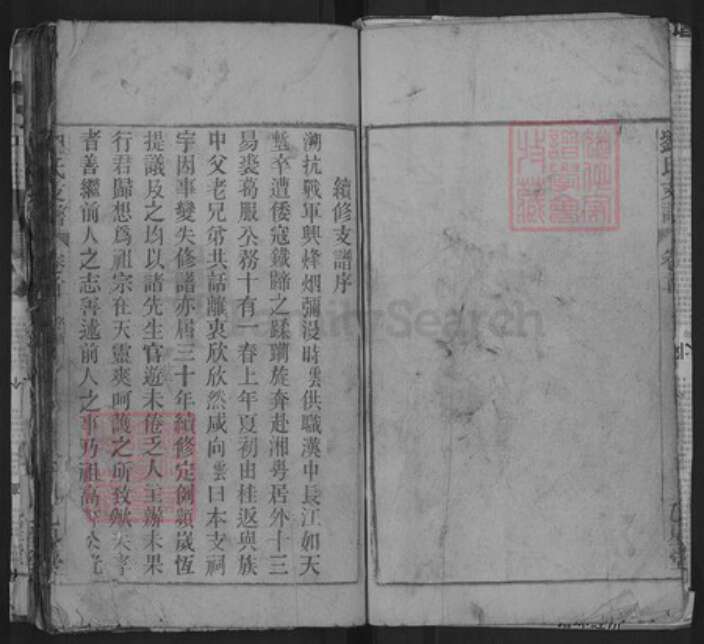 續修支譜序
溯抗戰軍興烽烟彌漫時雲供職漢中長江如天
塹卒遭倭寇鐵蹄之蹂躪旋奔赴湘粵居外十三
易裘葛服公務十有一春上年夏初由桂返與族
中父老兄弟共話離衷欣欣然咸向雲曰本支祠
宇因事變失修譜亦屆三十年續修定例類歲恆
提議及之均以諸先生官遊未倦乏人主辦未果
行君歸想爲祖宗在天靈爽呵護之所致歟夫孝
者善繼前人之志善述前人之事乃祖
氏支譜
卷首
劉氏支譜
卷首
堂
FamilySearch